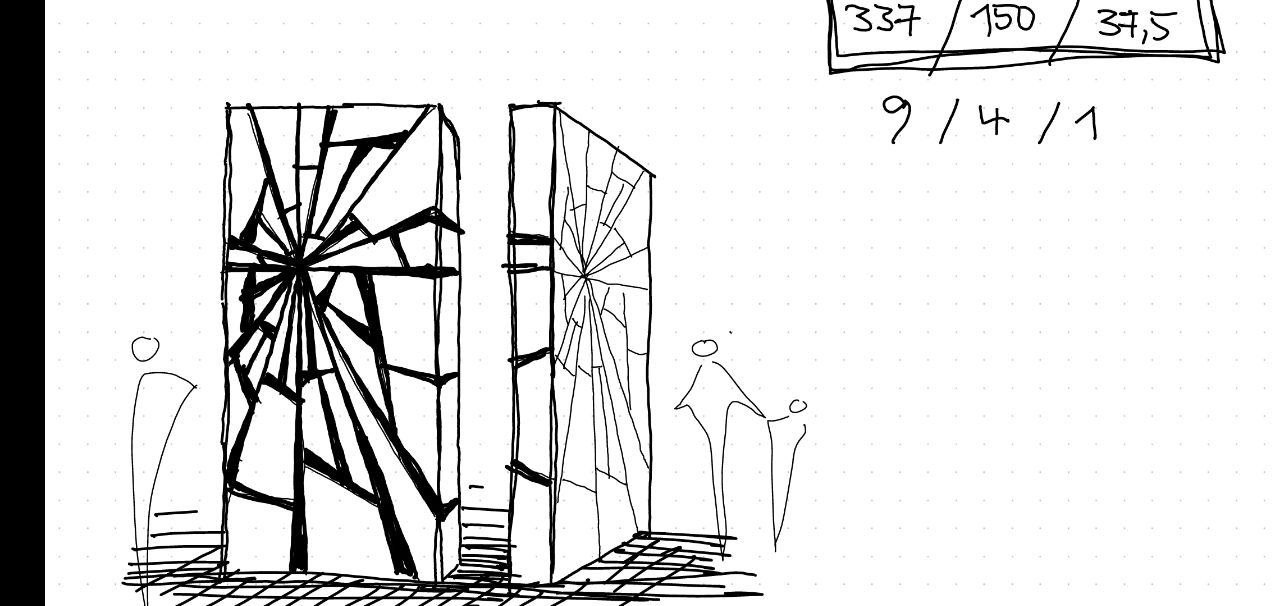 337 / 150 / 37,5
9 / 4 / 1